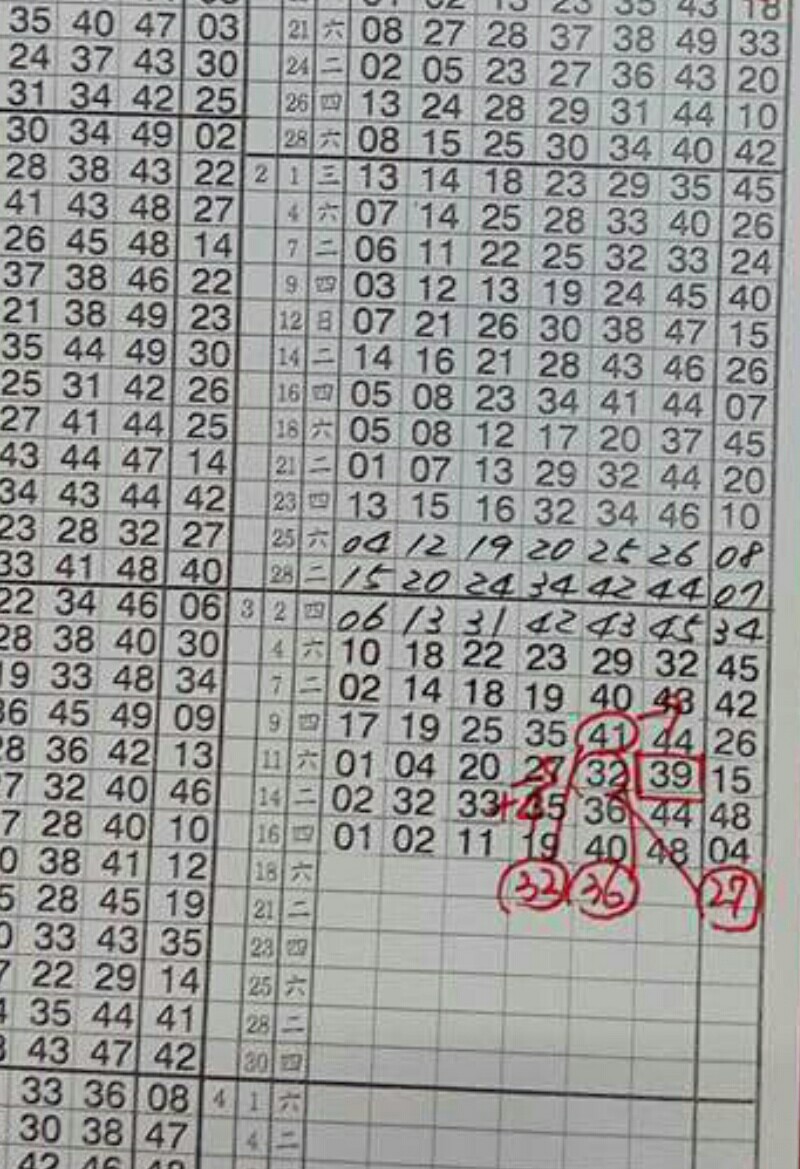 35 40 47 03 21 六 08 27 28 37 38 49 33
24 37 43 30 24 二 02 05 23 27 36 43 20
31 34 42 25 26 四 13 24 28 29 31 44 10
30 34 49 02 28 六 08 15 25 30 34 40 42
28 38 43 22 2 1 三 13 14 18 23 29 35 45
41 43 48 27 4 六 07 14 25 28 33 40 26
26 45 48 14 7 二 06 11 22 25 32 33 24
37 38 46 22 9 四 03 12 13 19 24 45 40
21 38 49 23 12 日 07 21 26 30 38 47 15
35 44 49 30 14 二 14 16 21 28 43 46 26
25 31 42 26 16 四 05 08 23 34 41 44 07
27 41 44 25 18 六 05 08 12 17 20 37 45
43 44 47 14 21 二 01 07 13 29 32 44 20
34 43 44 42 23 四 13 15 16 32 34 46 10
23 28 32 27 25 六 04 12 19 20 25 26 08
33 41 48 40 28 二 15 20 24 34 42 44 07
22 34 46 06 3 2 四 06 13 31 42 43 45 34
28 38 40 30 4 六 10 18 22 23 29 32 45
33 48 34 7 二 02 14 18 19 40 43 42
45 49 09 9 四 17 19 25 35 41 44 26
36 42 13 11 六 01 04 20 27 32 39 15
32 40 46 14 二 02 32 33 35 36 44 48
28 40 10 16 四 01 02 11 19 40 48 04
38 41 12 18 六 33 36 27
28 45 19 21 二
33 43 35 23 四
22 29 14 25 六
35 44 41 28 二
43 47 42 30 四
33 36 08 4 1 六
30 38 47 4 二